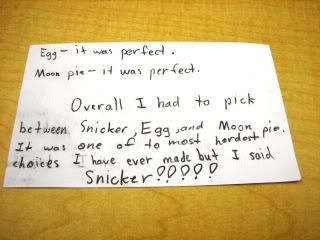 Egg - it was perfect.
Moon pie - it was perfect.
Overall I had to pick
between Snicker, Egg, and Moon pie.
It was one of to most hardest
choices I have ever made but I said
Snicker?????